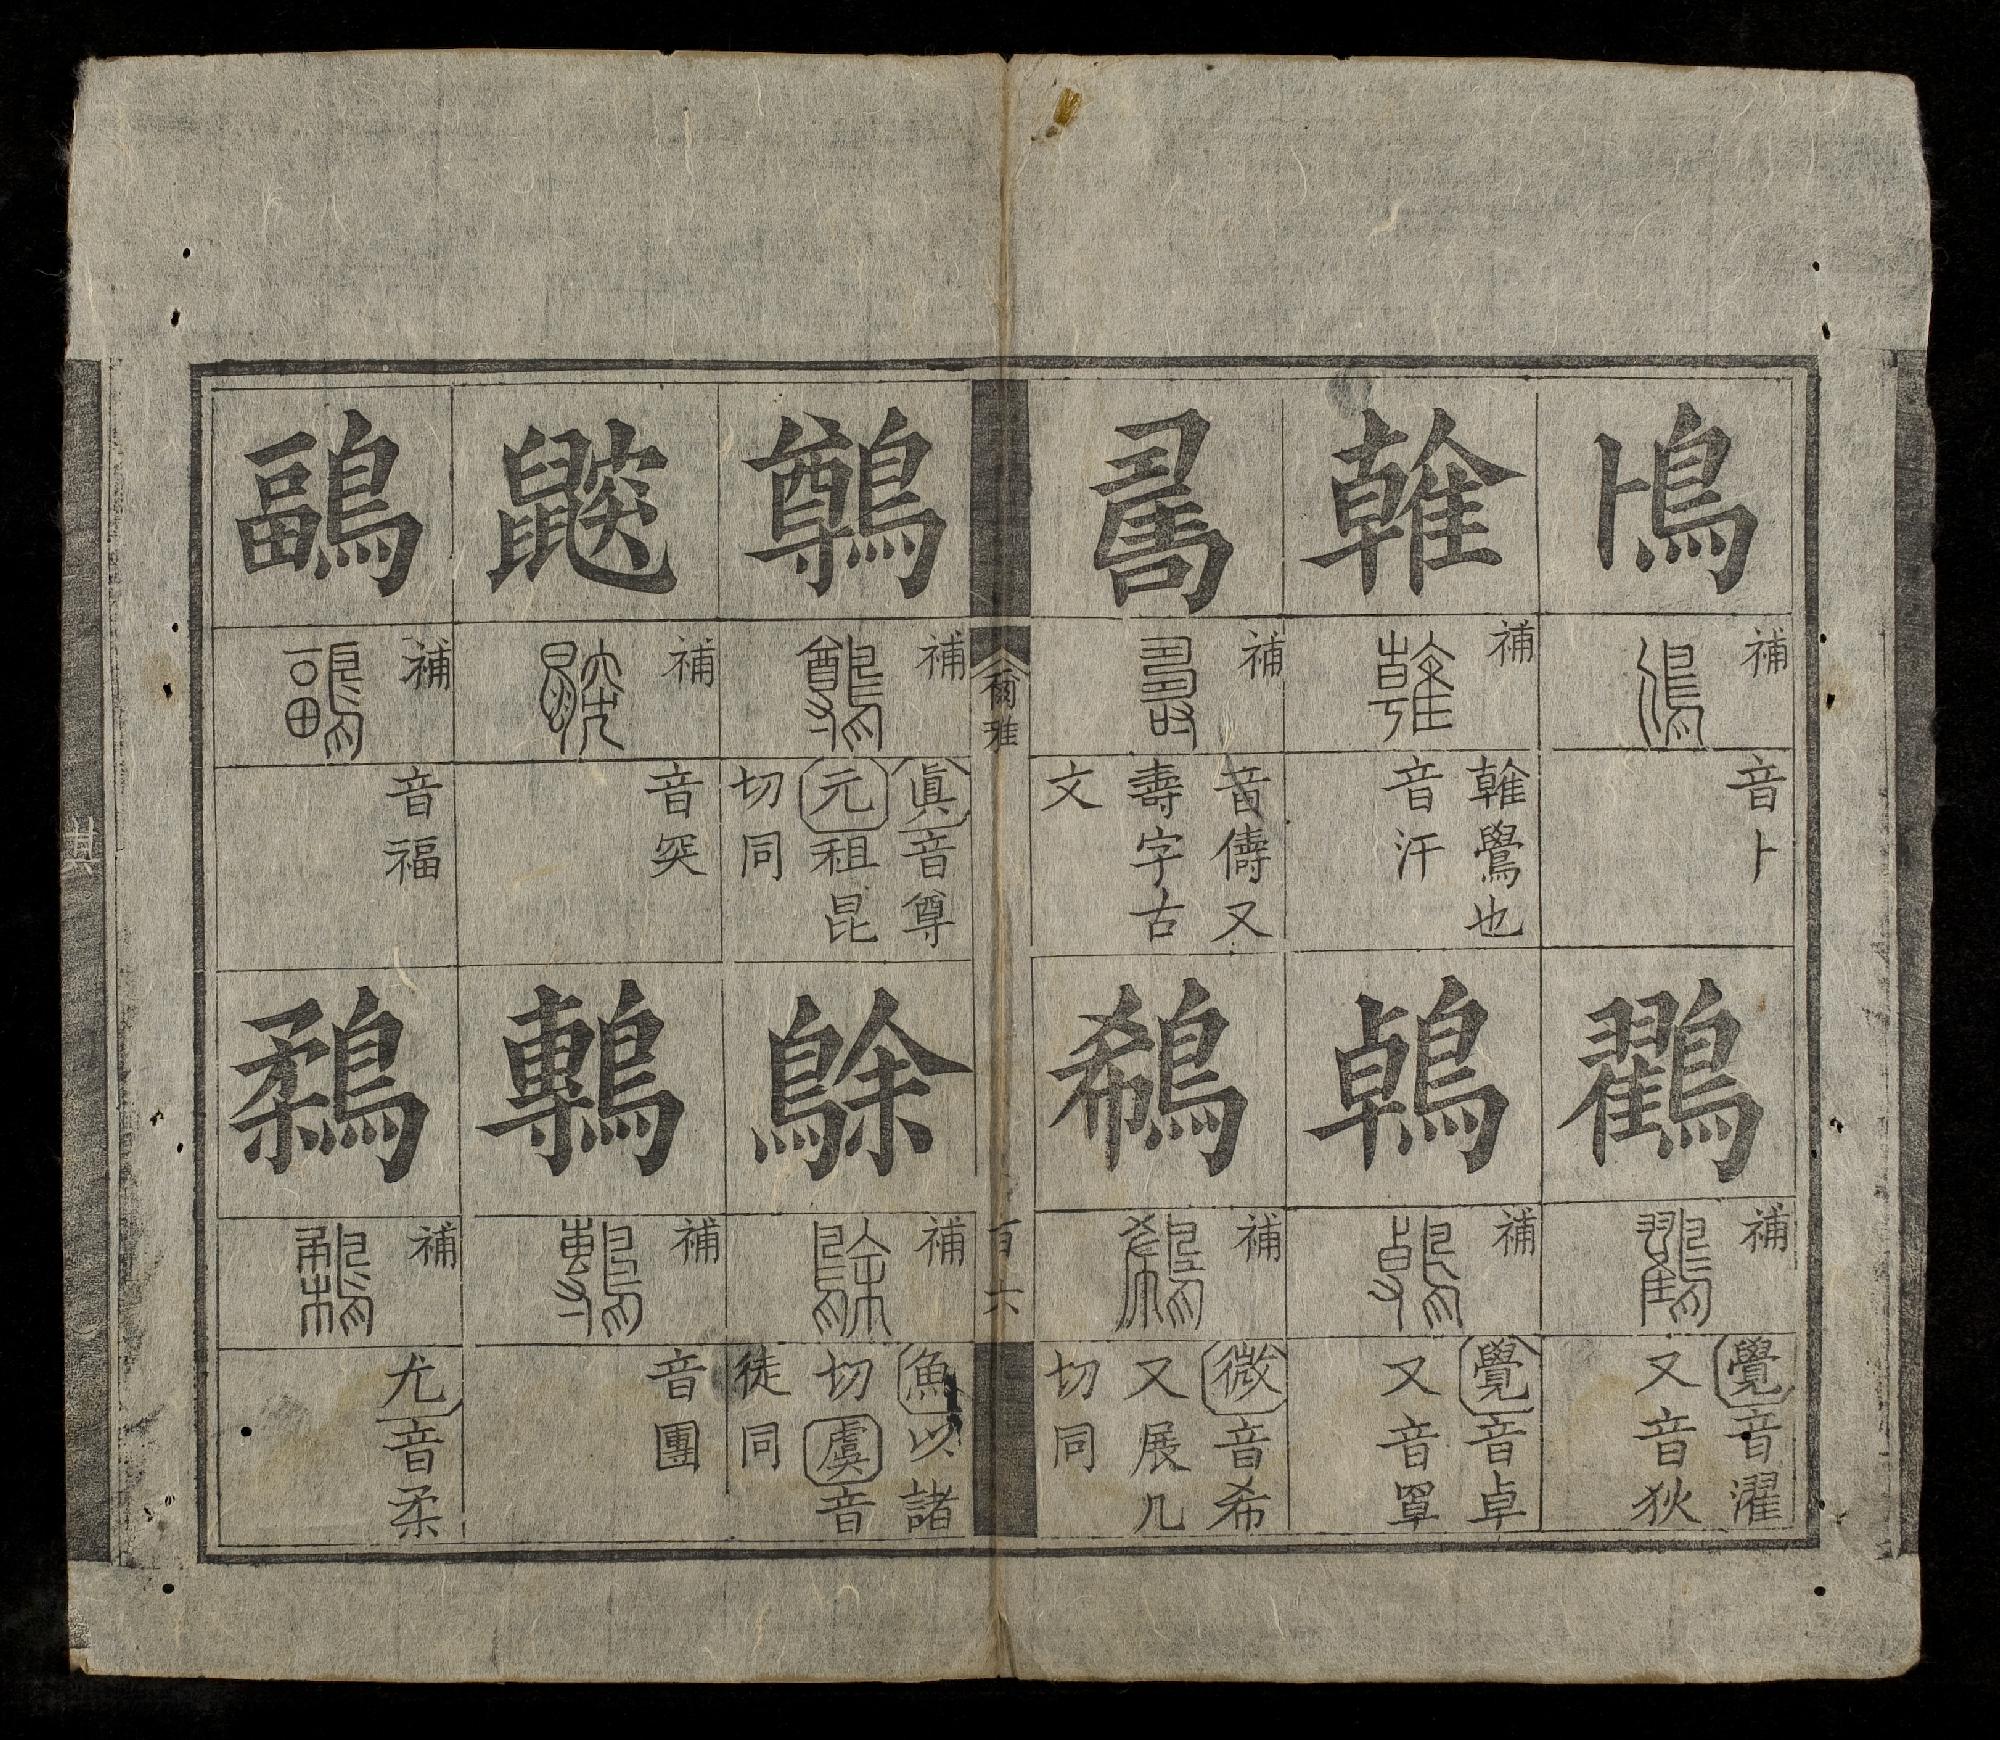 鳪
補
音卜
鸐
補
覺音濯
又音狄
雗
補
雗鷽也
音汗
鵫
補
覺音卓
又音罩
補
音儔又
壽字古
文
鵗
補
微音希
又展几
切同
爾雅
百六
鷷
補
眞音尊
元祖昆
切同
鵌
補
魚以諸
切虞音
徒同
鼵
補
音突
鷒
補
音團
鶝
補
音福
鶔
補
尤音柔